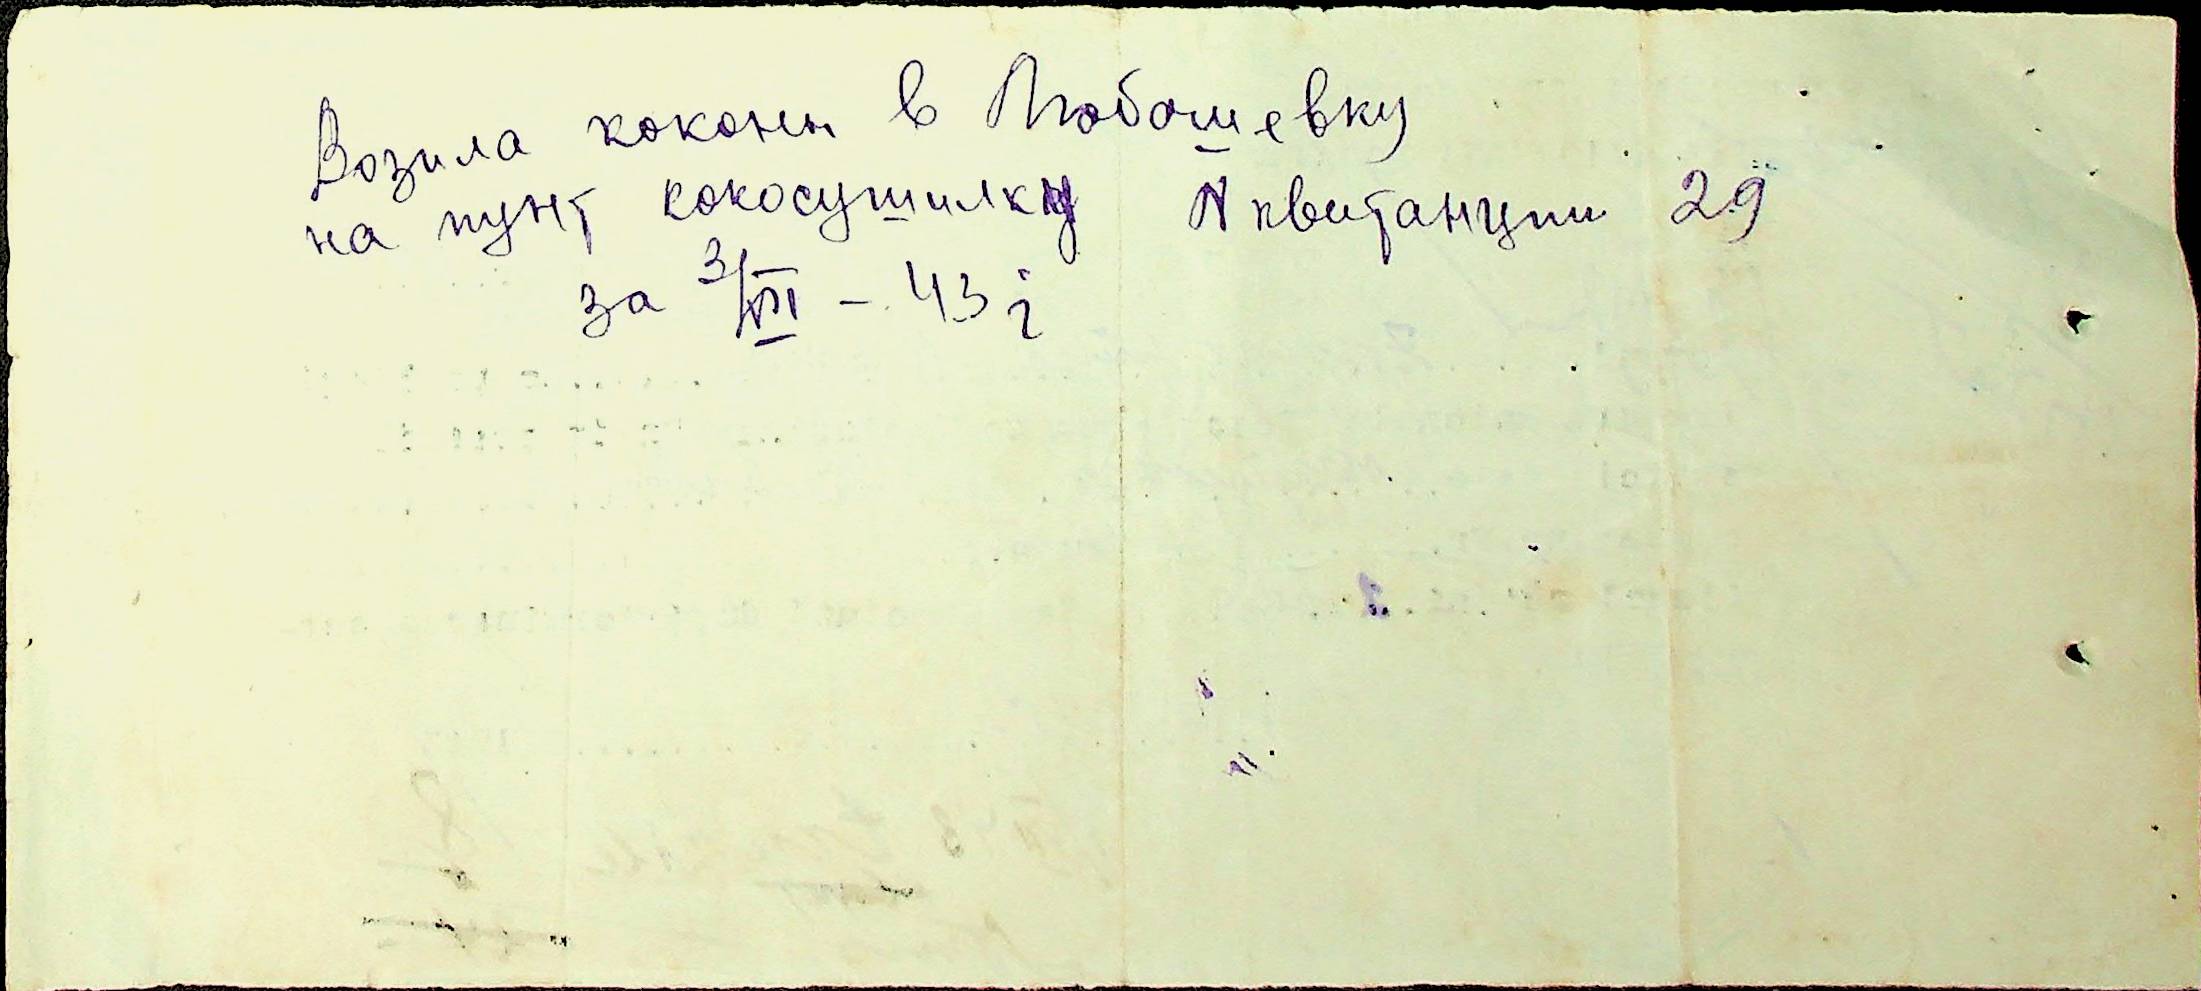 Возила коконы в Любашевку
на пункт кокосушилку № квитанции 29
за 3/VII – 43 г